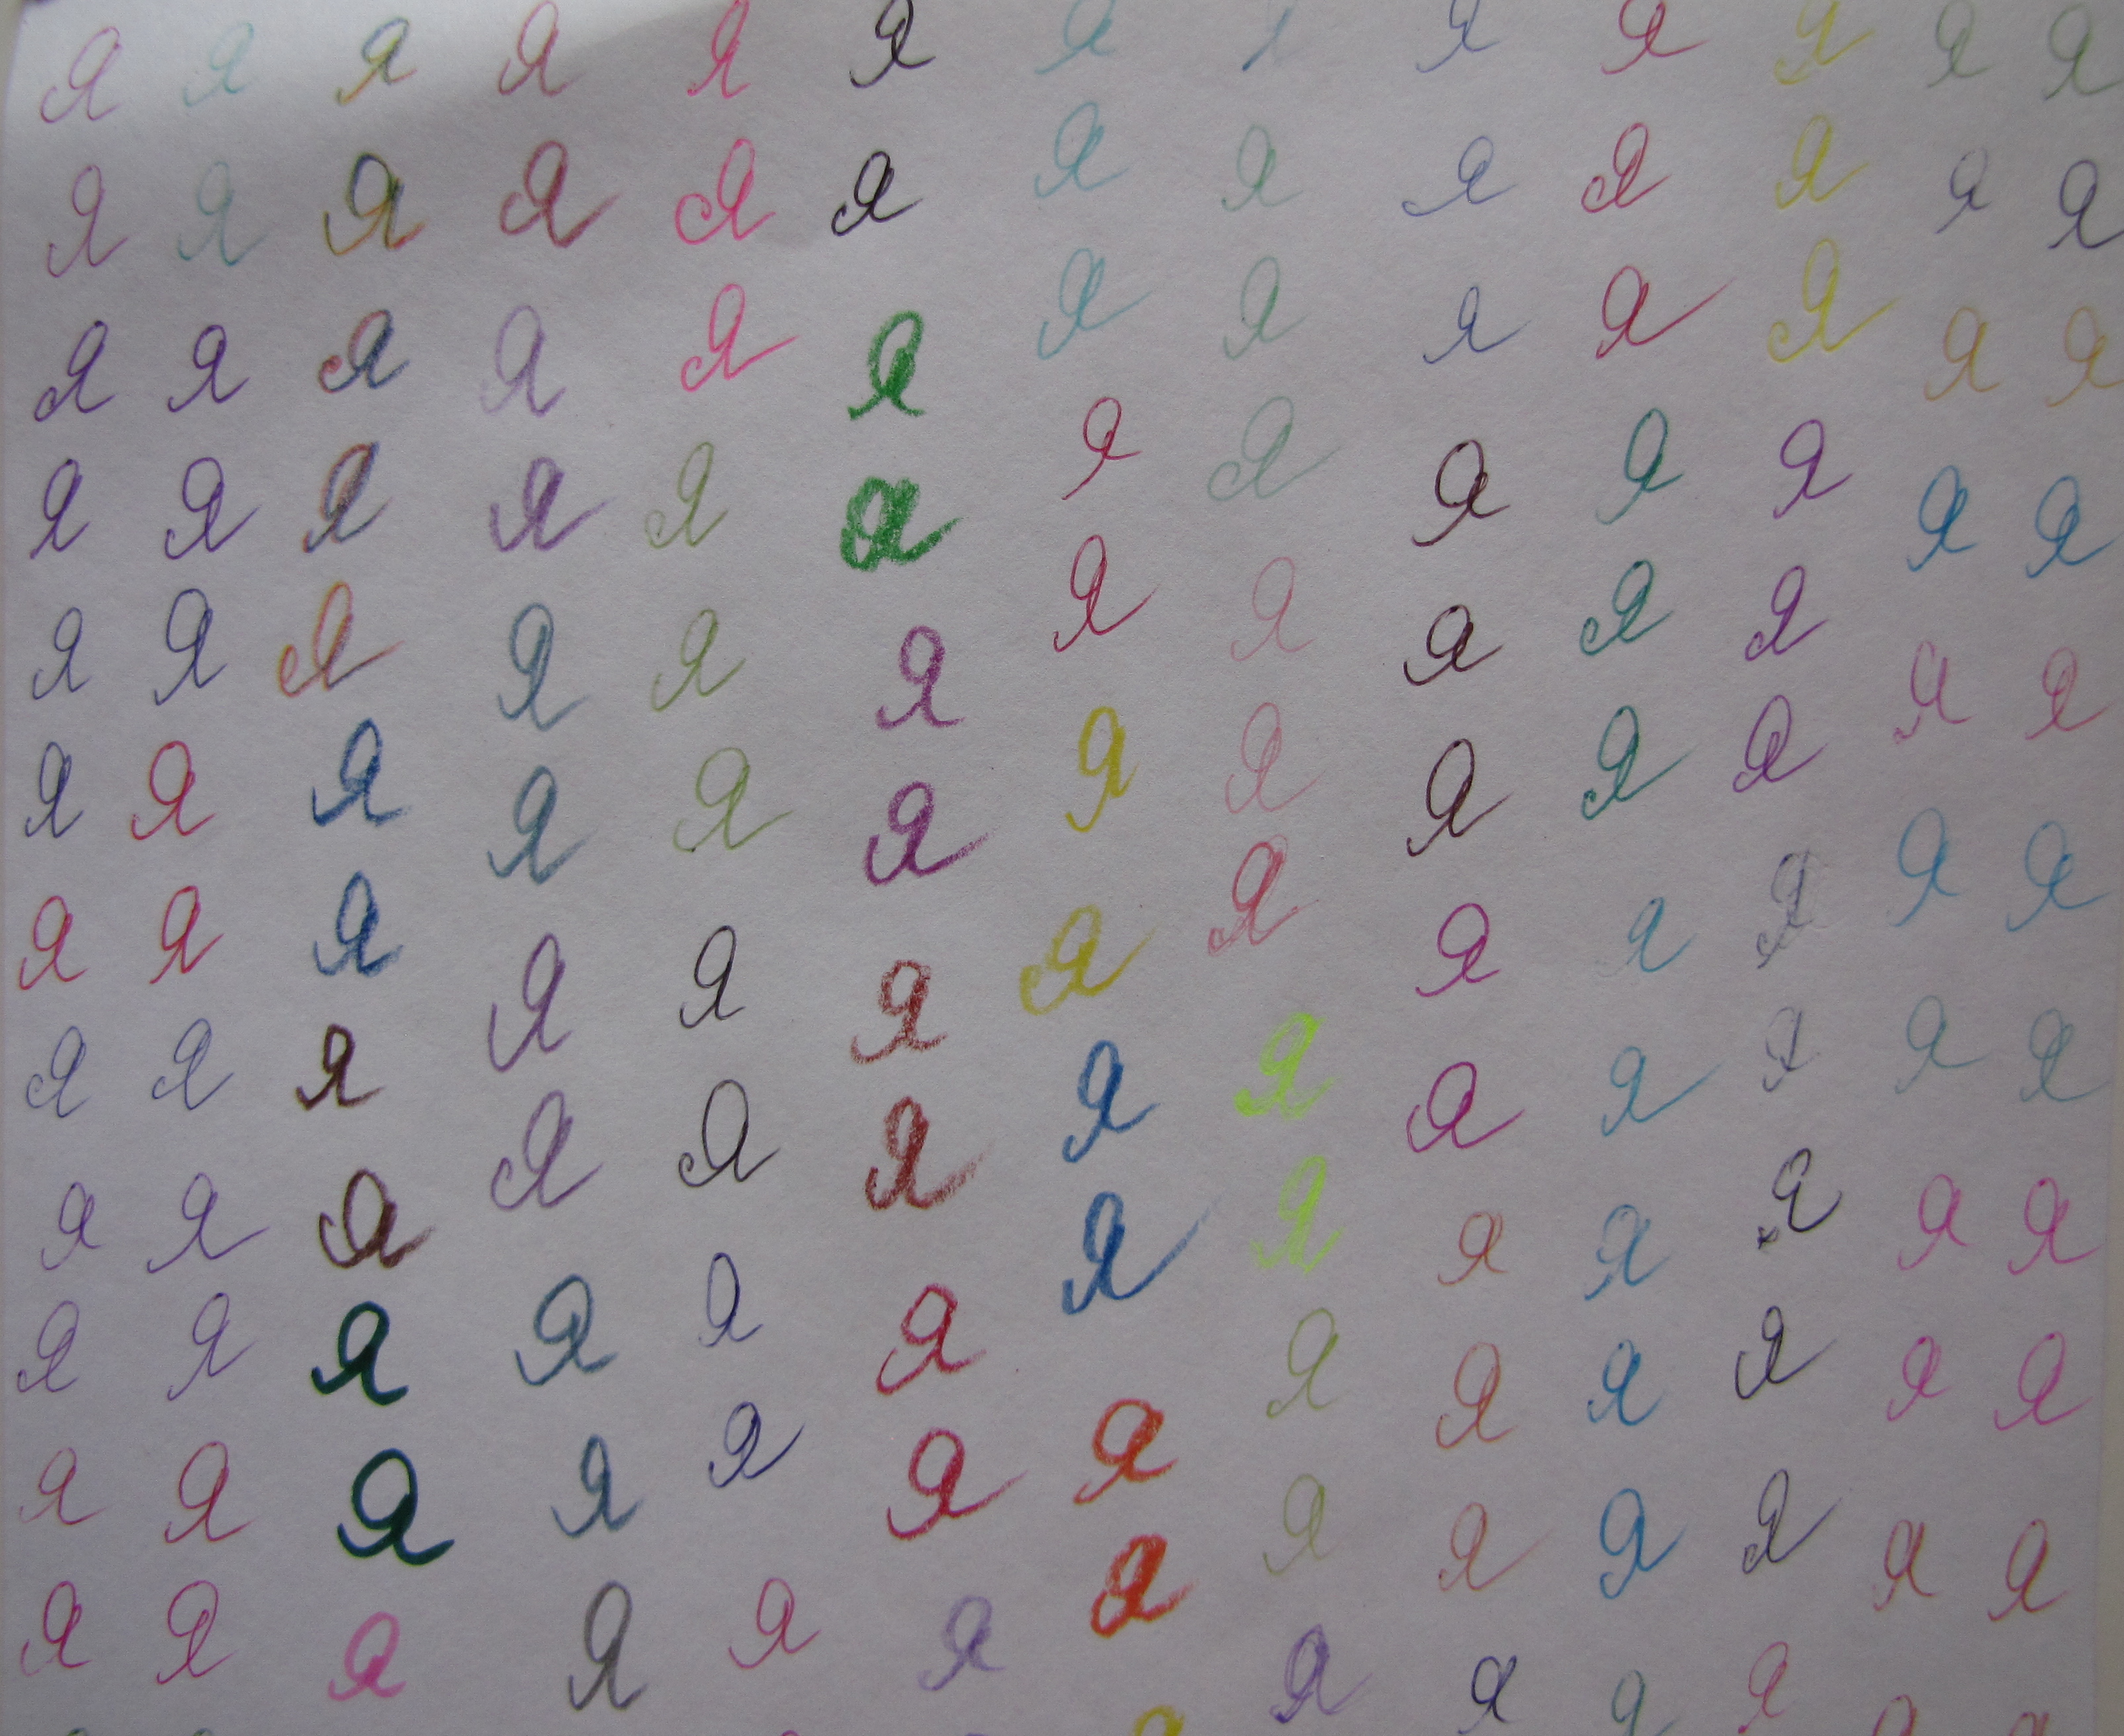 я я я я я я я я я я я я я
я я я я я я я я я я я я я
я я я я я я я я я я я я я
я я я я я я я я я я я я я
я я я я я я я я я я я я я
я я я я я я я я я я я я я
я я я я я я я я я я я я я
я я я я я я я я я я я я я
я я я я я я я я я я я я я
я я я я я я я я я я я я я
я я я я я я я я я я я
я я я я я я я